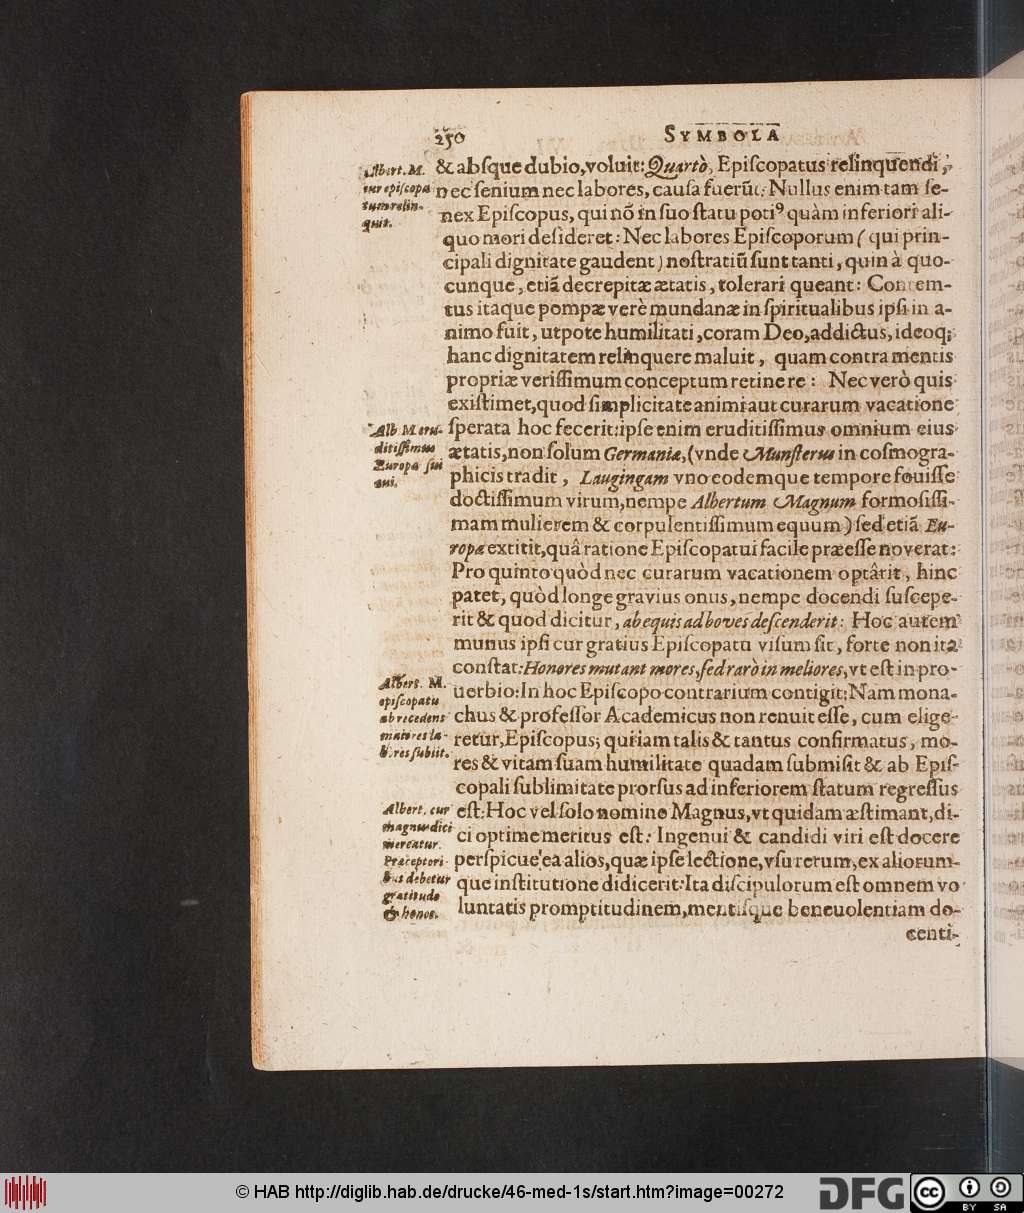 250
SYMBOLA
& abſque dubio, voluit: Quartò, Epiſcopatus relinquendi,
nec ſenium nec labores, cauſa fuerũt: Nullus enim tam ſe-
nex Epiſcopus, qui nõ in ſuo ſtatu potiꝰ quàm inferiori ali-
quo mori deſideret: Nec labores Epiſcoporum (qui prin-
cipali dignitate gaudent) noſtratiũ ſunt tanti, quin à quo-
cunque, etiã decrepitæ ætatis, tolerari queant: Contem-
tus itaque pompæ verè mundanæ in ſpiritualibus ipſi in a-
nimo fuit, utpote humilitati, coram Deo, addictus, ideoq;
hanc dignitatem relinquere maluit, quam contra mentis
propriæ veriſſimum conceptum retinere: Nec verò quis
exiſtimet, quod ſimplicitate animi aut curarum vacatione
ſperata hoc fecerit: ipſe enim eruditiſſimus omnium eius
ætatis, non ſolum Germaniæ, (vnde Munſterus in coſmogra-
phicis tradit, Laugingam vno eodemque tempore fouiſſe
doctiſſimum virum, nempe Albertum Magnum formoſiſſi-
mam mulierem & corpulentiſſimum equum) ſed etiã Eu-
ropæ extitit, quâ ratione Epiſcopatui facile præeſſe noverat:
Pro quinto quòd nec curarum vacationem optârit, hinc
patet, quòd longe gravius onus, nempe docendi ſuſcepe-
rit & quod dicitur, ab equis ad boves deſcenderit: Hoc autem
munus ipſi cur gratius Epiſcopatu viſum ſit, forte non ita
conſtat: Honores mutant mores, ſed rarò in meliores, vt eſt in pro-
uerbio: In hoc Epiſcopo contrarium contigit: Nam mona-
chus & profeſſor Academicus non renuit eſſe, cum elige-
retur, Epiſcopus; quriam talis & tantus confirmatus, mo-
res & vitam ſuam humilitate quadam ſubmiſit & ab Epiſ-
copali ſublimitate prorſus ad inferiorem ſtatum regreſſus
eſt: Hoc vel ſolo nomine Magnus, vt quidam æſtimant, di-
ci optime meritus eſt: Ingenui & candidi viri eſt docere
perſpicue ea alios, quæ ipſe lectione, vſu rerum, ex aliorum-
que inſtitutione didicerit: Ita diſcipulorum eſt omnem vo
luntatis promptitudinem, mentiſque beneuolentiam do-
centi-
Albert. M.
cur epiſcopa
tum relin-
quit.
Alb M eru-
ditiſſimus
Europæ ſui
æui.
Albert. M.
epiſcopatu
ab recedens
maiores la-
bores ſubiit.
Albert. cur
magnus dici
mereatur.
Præceptori-
bus debetur
gratitudo
& honos.
© HAB http://diglib.hab.de/drucke/46-med-1s/start.htm?image=00272
DFG
cc BY SA